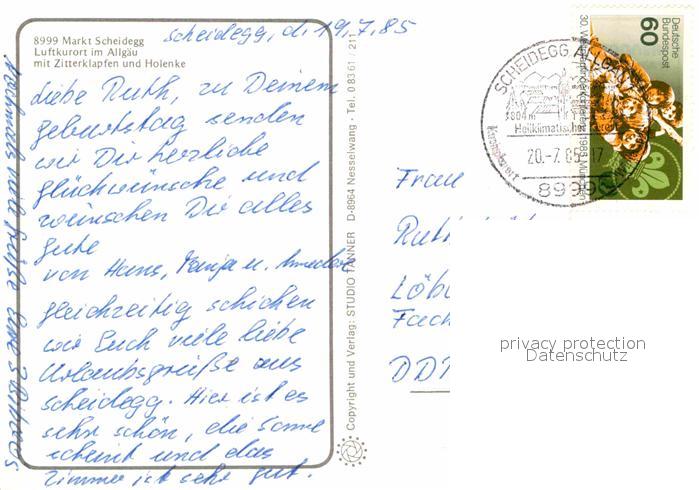 8999 Markt Scheidegg
Luftkurort im Allgäu
mit Zitterklapfen und Holenke
Scheidegg, d. 19.7.85
Liebe Ruth, zu Deinem
Geburtstag senden
wir Dir herzliche
Glückwünsche und
wünschen Dir alles
Gute
von Hans, Tanja u.
Gleichzeitig schicken
wir Euch viele liebe
Urlaubsgrüße aus
Scheidegg. Hier ist es
sehr schön, die Sonne
scheint und das
Zimmer ist sehr gut.
Nochmals viele Grüße Eure
Copyright und Verlag: STUDIO TANNER D-8964 Nesselwang - Tel. 0 83 61 / 211
Frau
Löb
Fach
DDR
SCHEIDEGG, ALLGÄU
804 m
Heilklimatischer Kurort
Kneippkurort
20.-7.85-17
8999
Deutsche
Bundespost
60
30. Weltpfadfinderkonferenz 1985 München
privacy protection
Datenschutz